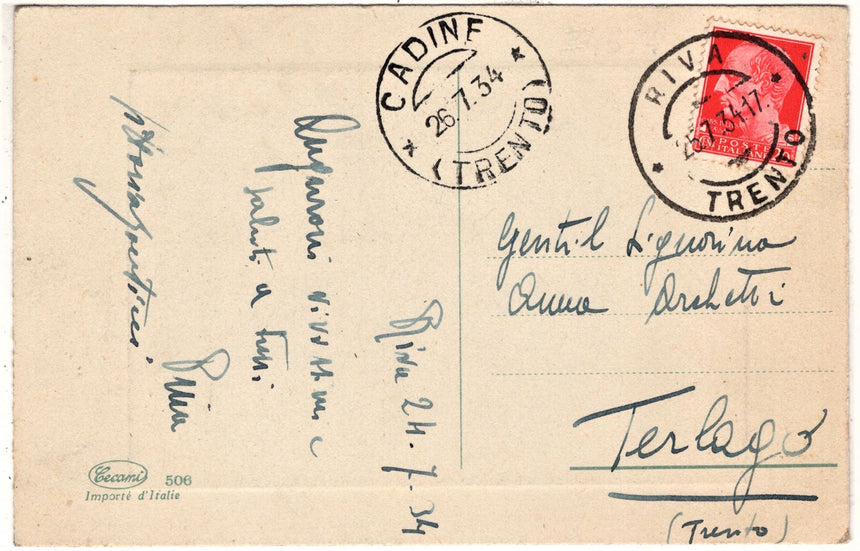 CADINE
26.7.34
(TRENTO)
RIVA
25.7.34-17.
TRENTO
POSTE
ITALIANE
Riva 24.7.34
Auguroni vivissimi e
saluti a tutti
Pina
Gentil Signorina
Anna Archetti
Terlago
(Trento)
Cecami 506
Importé d'Italie